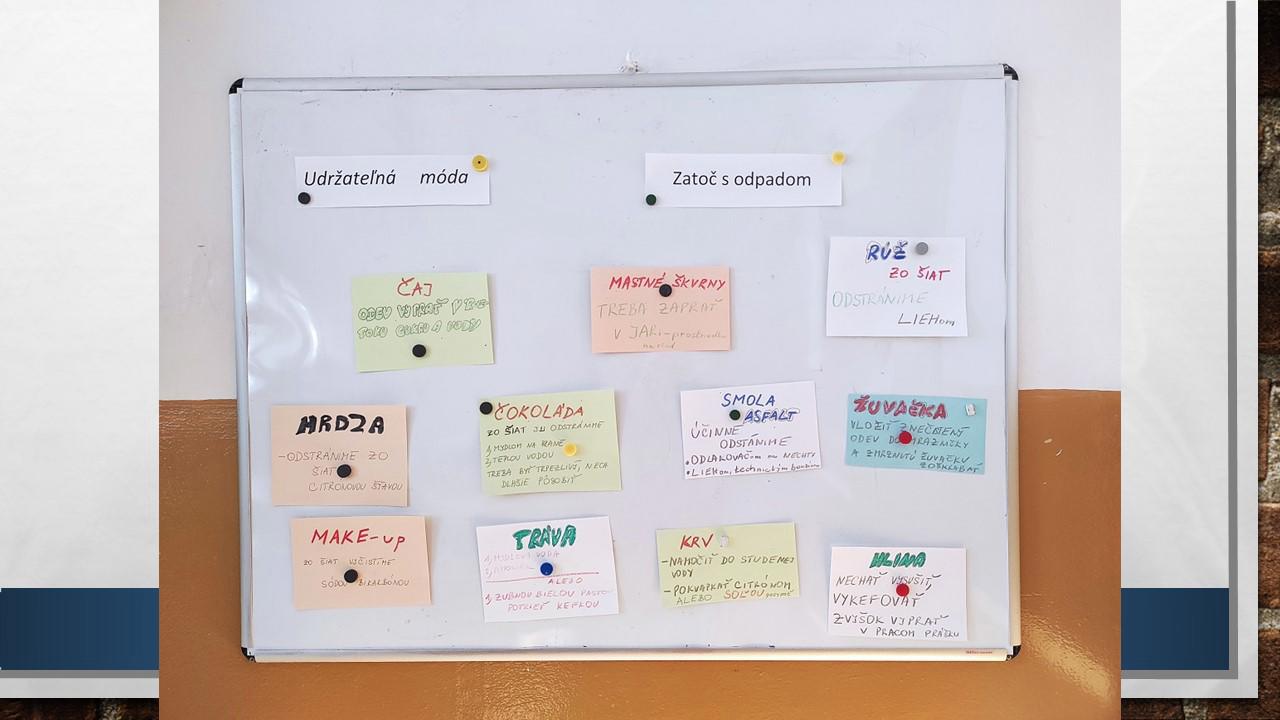 Udržateľná móda
Zatoč s odpadom
ČAJ
ODEV VYPRAŤ V
TOKU CUKRU A VODY
MASTNÉ ŠKVRNY
TREBA ZAPRAŤ
V JARi-prostriedku
na riad
RÚŽ
ZO ŠIAT
ODSTRÁNIME
LIEHom
HRDZA
-ODSTRÁNIME ZO
ŠIAT
CITRÓNOVOU ŠŤAVOU
ČOKOLÁDA
ZO ŠIAT JU ODSTRÁNIME
1, MYDLOM NA PRANIE
2, TEPLOU VODOU
TREBA BYŤ TRPEZLIVÍ, NECH
DLHŠIE PÔSOBIŤ
SMOLA
ASFALT
ÚČINNE
ODSTÁNIME
•ODLAKOVAČom na NECHTY
•LIEHom, technickým benzínom
ŽUVAČKA
VLOŽIŤ ZNEČISTENÝ
ODEV DO MRAZNIČKY
A ZMRZNUTÚ ŽUVAČKU
ZOŠKRABAŤ
MAKE-up
ZO ŠIAT VYČISTÍME
SÓDOU BIKARBÓNOU
TRÁVA
1, MYDLOVÁ VODA
ALEBO
2, ZUBNOU BIELOU PASTOU
POTRIEŤ KEFKOU
KRV
-NAMOČIŤ DO STUDENEJ
VODY
-POKVAPKAŤ CITRÓNOM
ALEBO SOĽOU
HLINA
NECHAŤ VYSUŠIŤ,
VYKEFOVAŤ
ZVYŠOK VYPRAŤ
V PRACOM PRÁŠKU